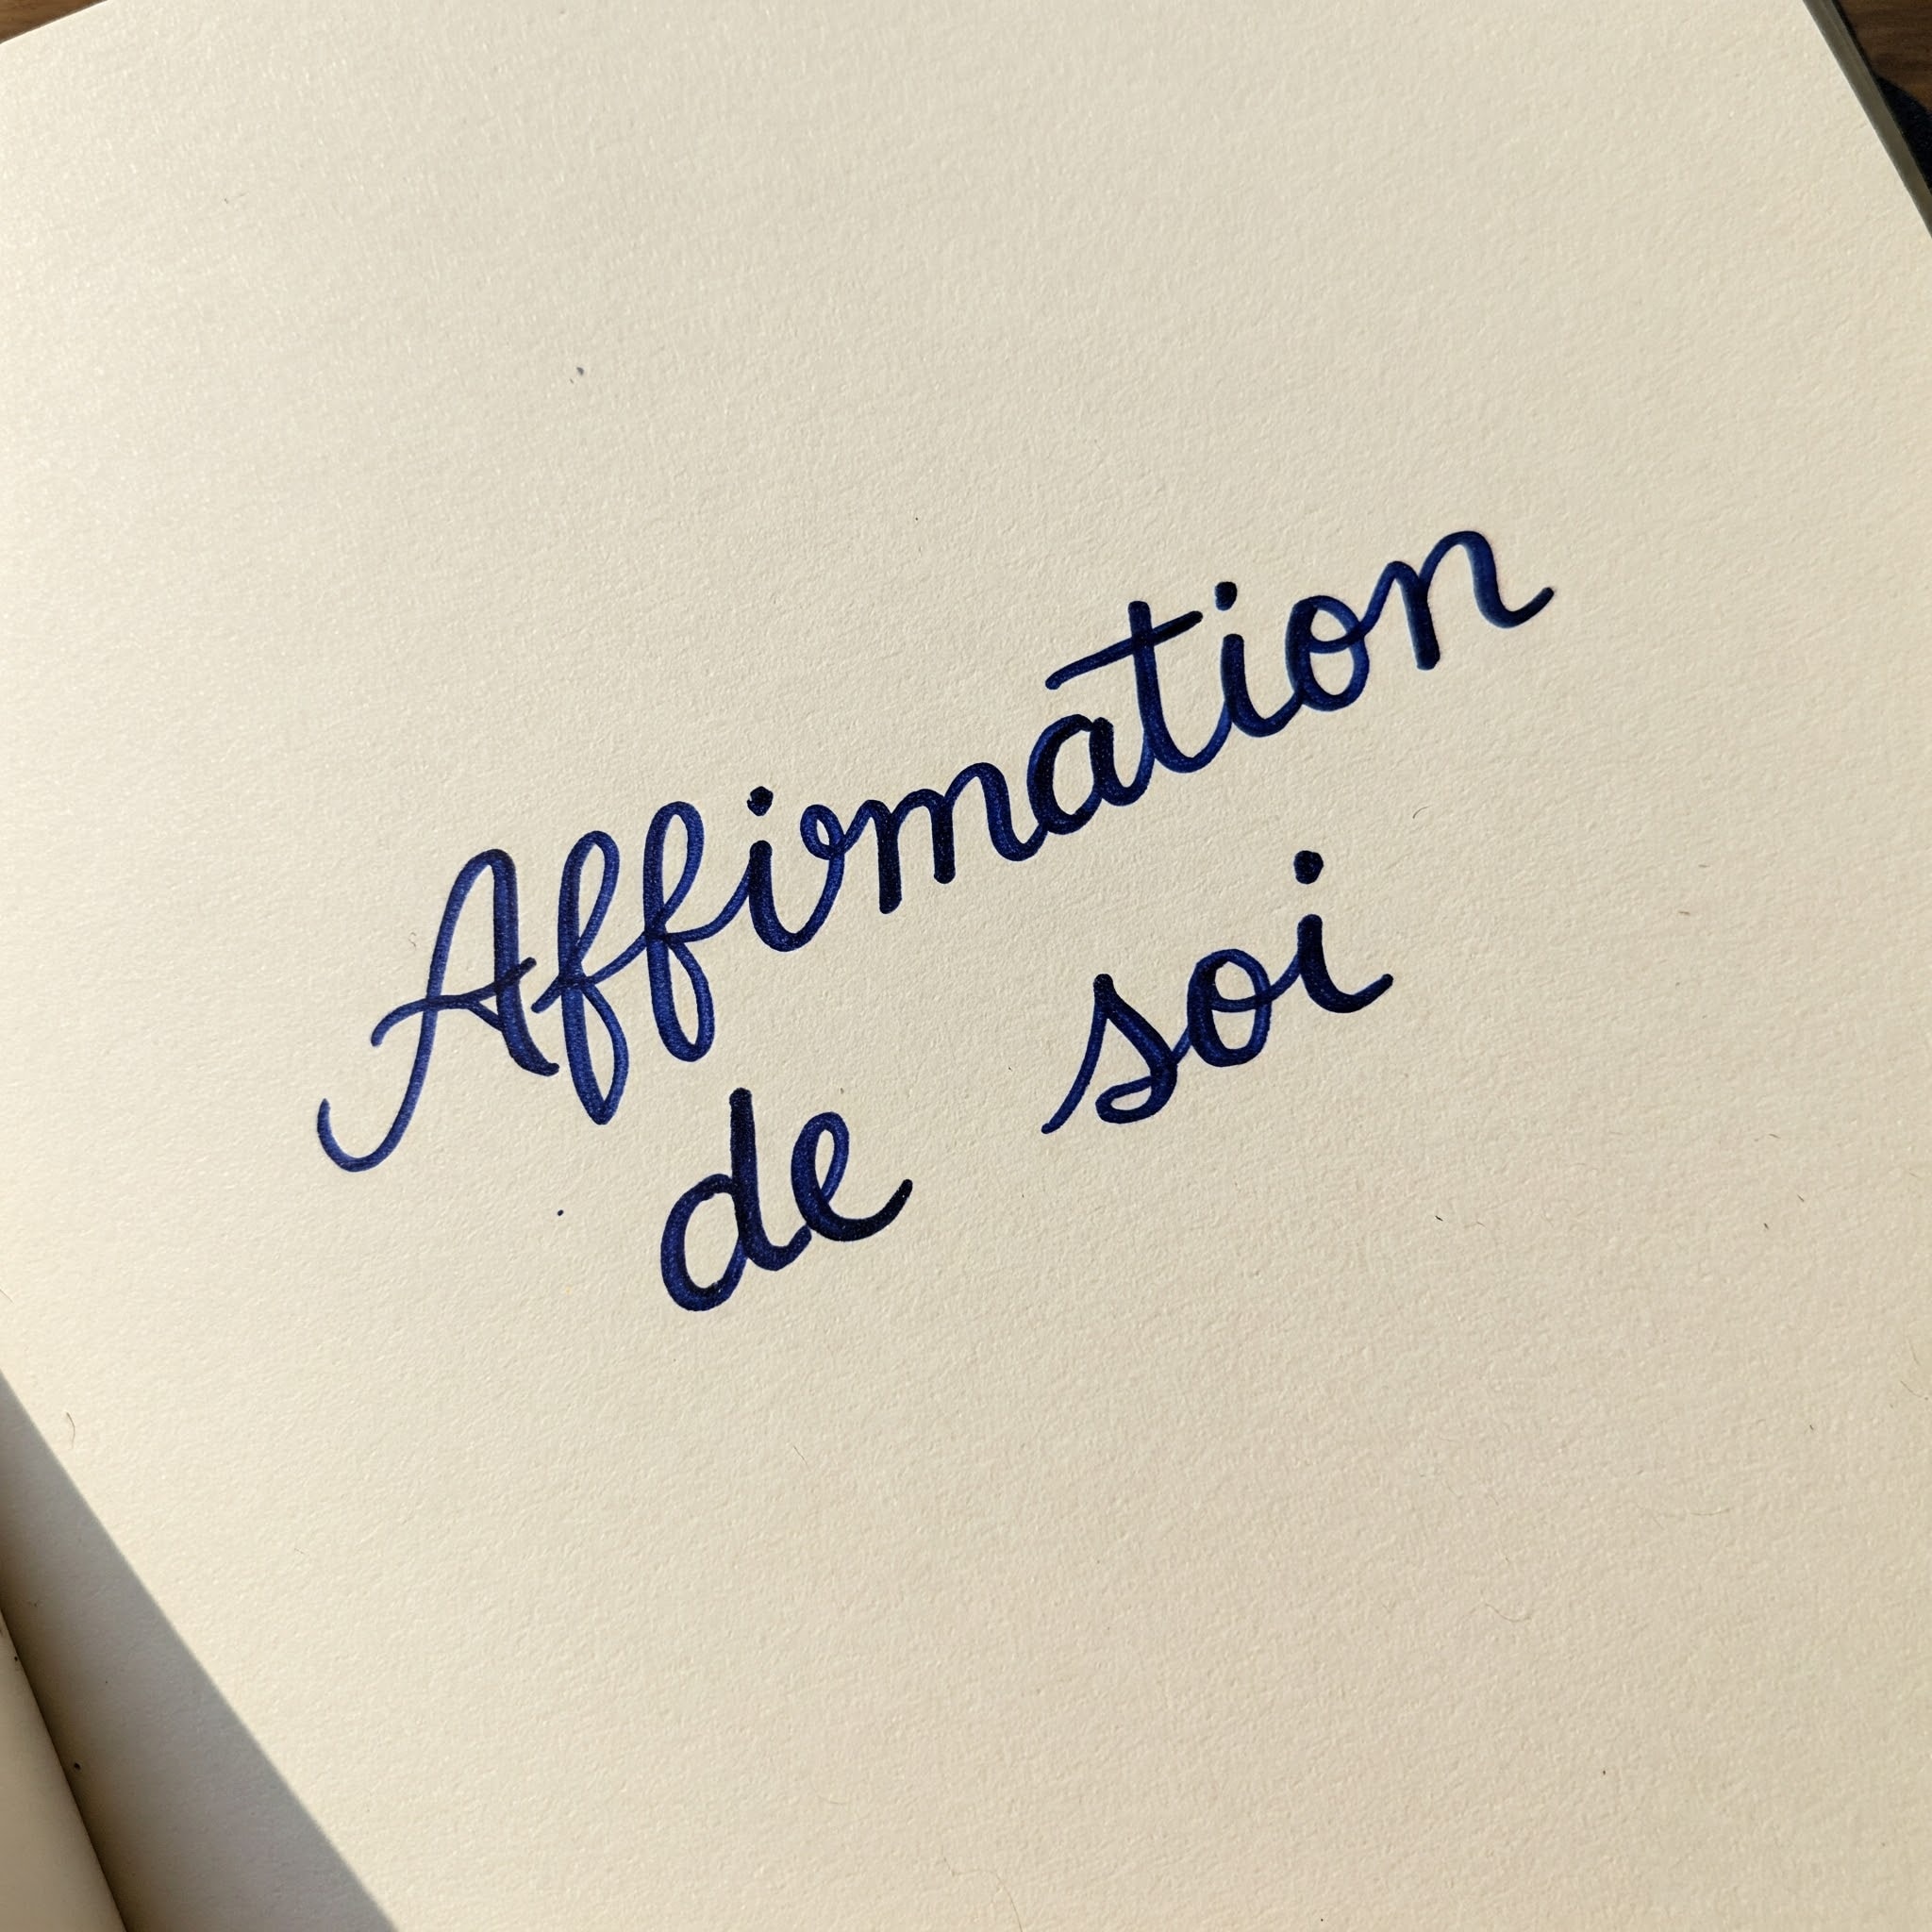 Affirmation
de soi